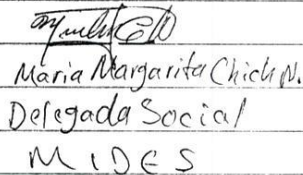 Maria Margarita Chich N.
Delegada Social
MIDES